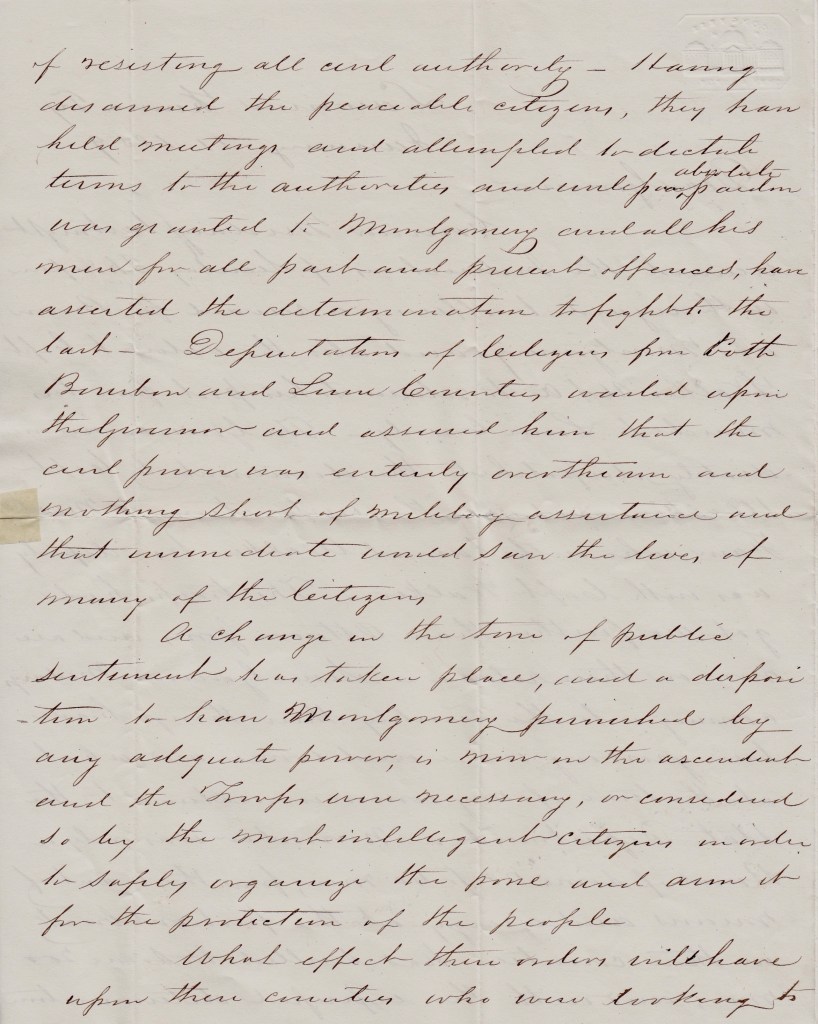 of resisting all civil authority – Having
disarmed the peaceable citizens, they have
held meetings and attempted to dictate
terms to the authorities and unless absolute pardon
was granted to Montgomery and all his
men for all past and present offences, have
asserted the determination to fight to the
last – Deputations of Citizens from both
Bourbon and Linn Counties waited upon
the Governor and assured him that the
civil power was entirely overthrown and
nothing short of military assistance and
that immediate would save the lives of
many of the Citizens
A change in the tone of public
sentiment has taken place, and a disposi
-tion to have Montgomery punished by
any adequate power, is now in the ascendent
and the Troops were necessary, or considered
so by the most intelligent citizens in order
to safely organize the posse and arm it
for the protection of the people
What effect these orders will have
upon these counties who were looking to